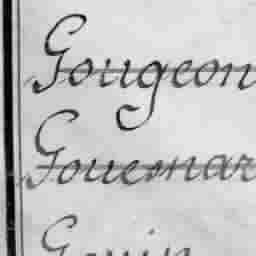 Gougeon
Gouesnar
Gouin